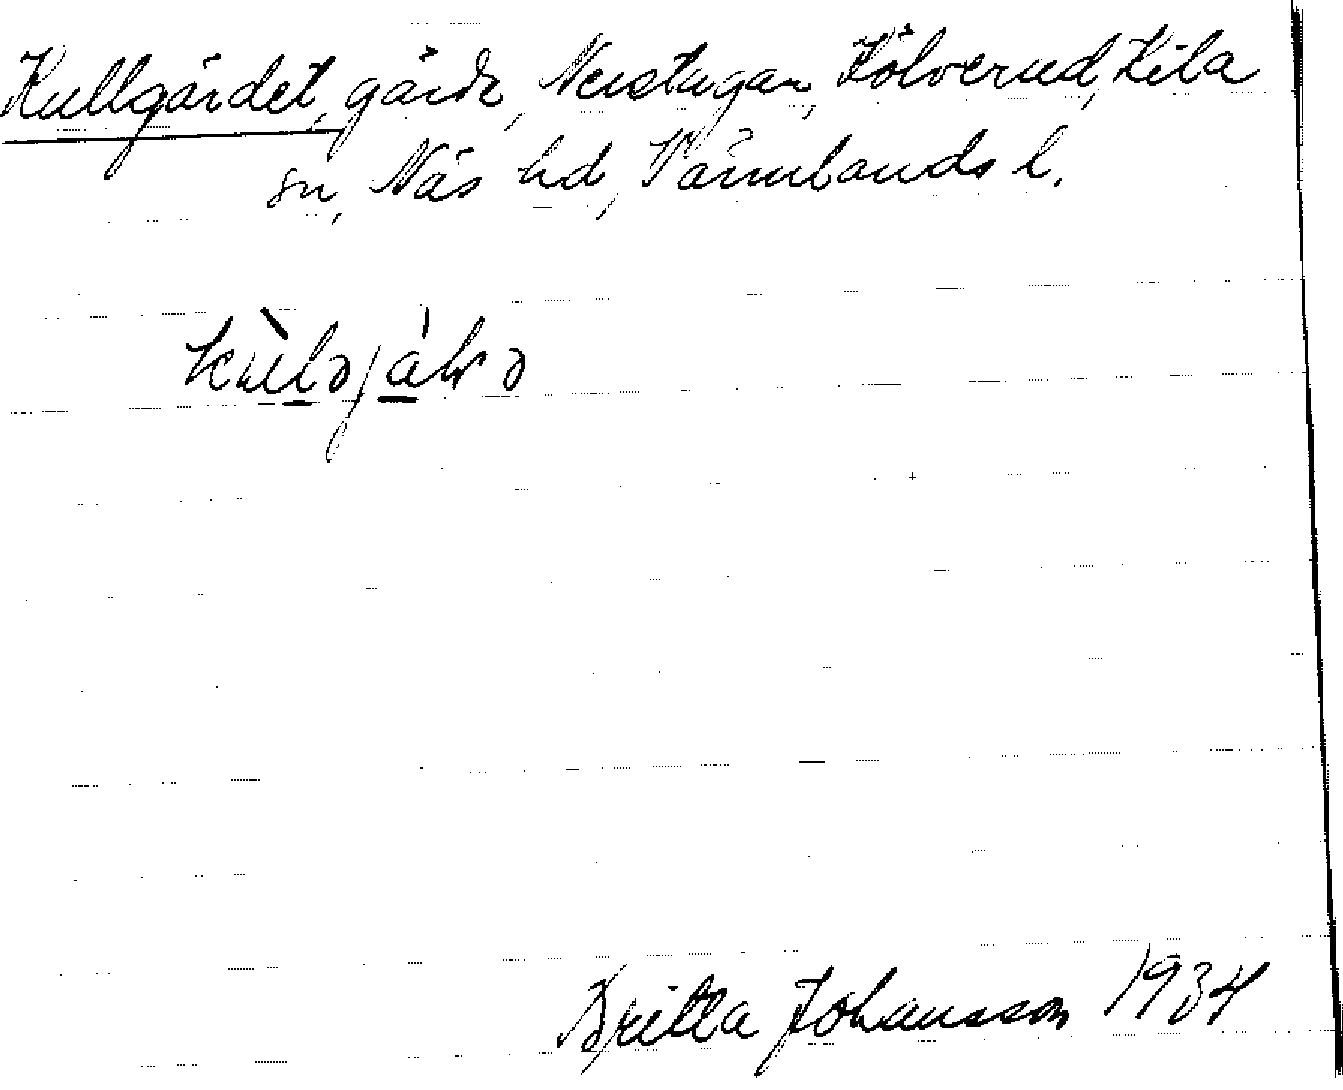 Kullgärdet, gärde, Nerstugan, Kölverud, Kila
sn, Näs hd, Värmlands l.
Britta Johansson 1934